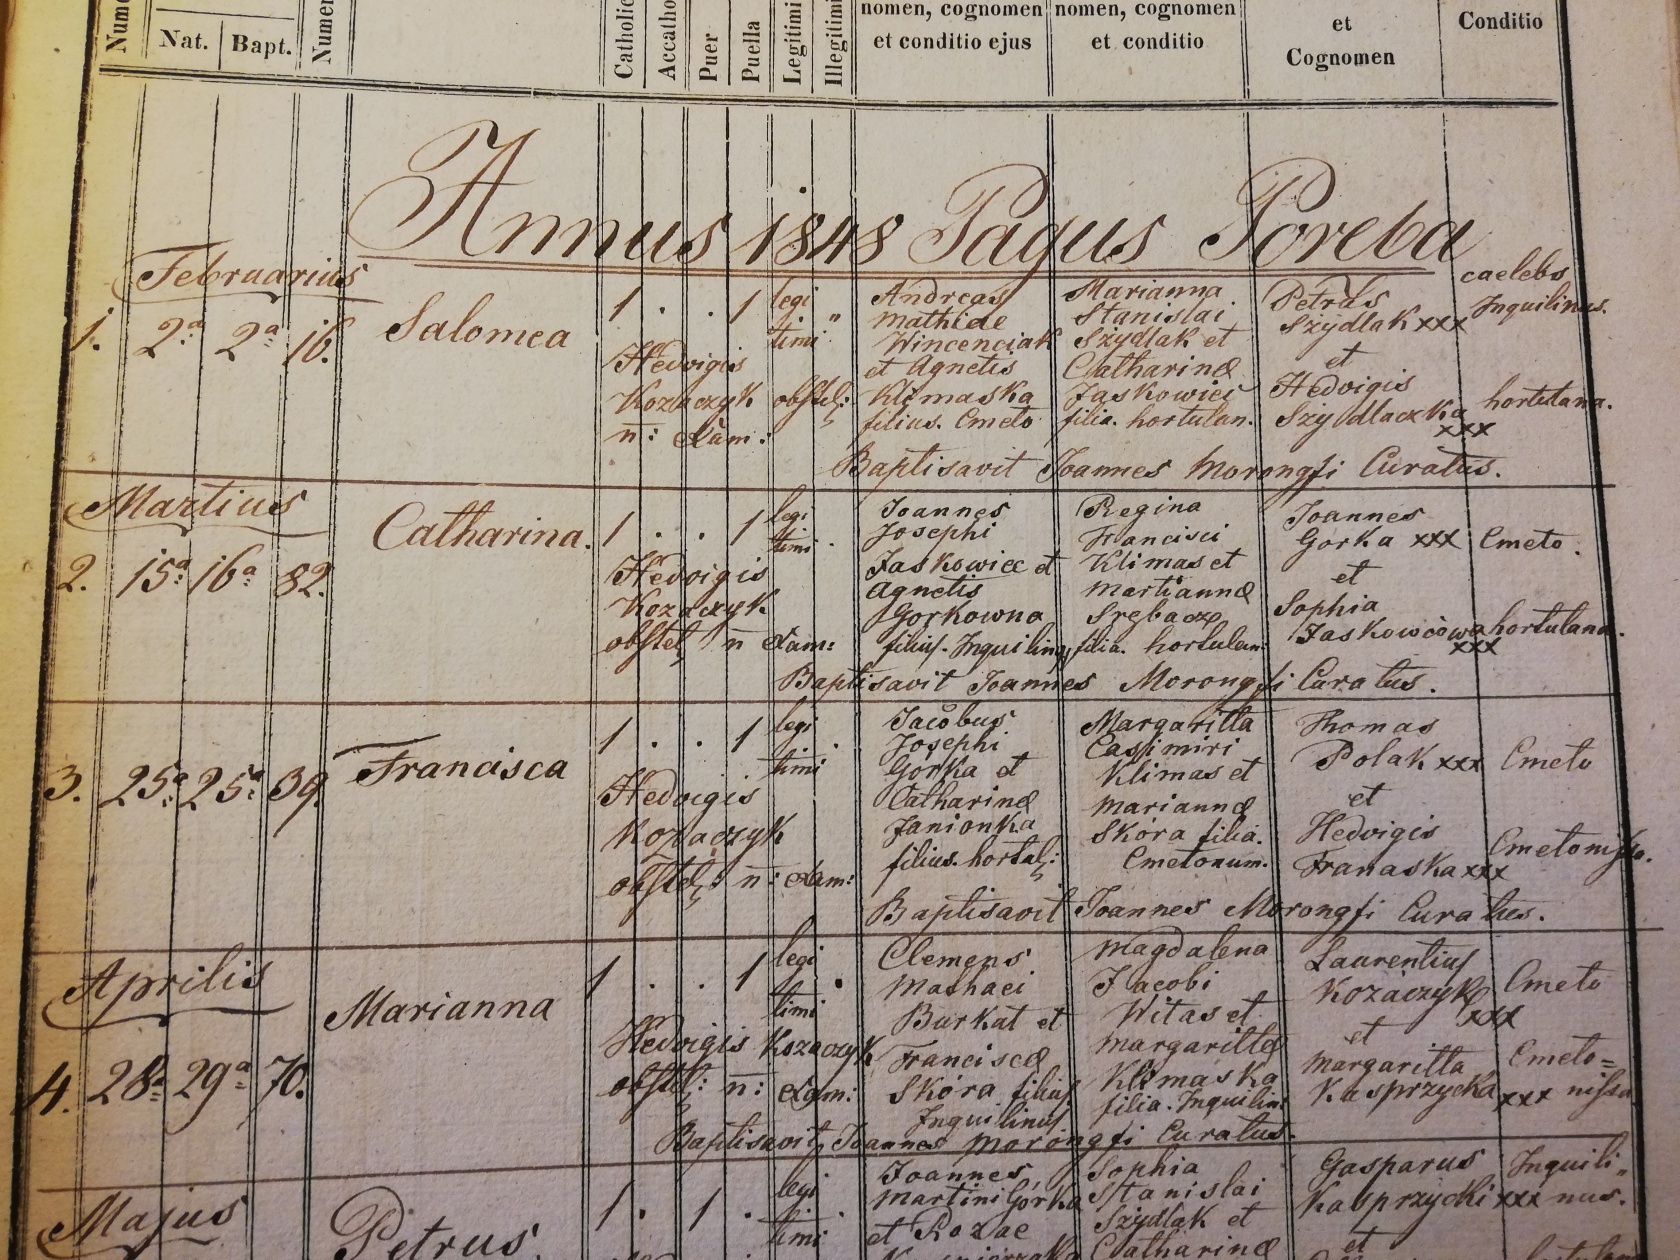 Nume
Nat.
Bapt.
Numer
Catholic
Accatho
Puer
Puella
Legitimi
Illegitimi
nomen, cognomen
et conditio ejus
nomen, cognomen
et conditio
et
Cognomen
Conditio
Annus 1848 Pagus Poreba
Februarius
1. 2ª 2ª 16. Salomea
1 . . 1 legi
timi "
Hedvigis
Kozaczyk obstel:
n: Exam:
Andreas
Mathiae
Wincenciak
et Agnetis
Klimaska
filius. Cmeto
Marianna
Stanislai
Szydlak et
Catharinæ
Jaskowiec
filia. hortulan.
Petrus
Szydlak xxx
et
Hedvigis
Szydlaczka
xxx
caelebs
Inquilinus.
hortulana.
Baptisavit Joannes Morongsi Curatus.
Martius
2. 15ª 16ª 82. Catharina.
1 . . 1 legi
timi .
Hedvigis
Kozaczyk
obstel: n Exam:
Joannes
Josephi
Jaskowiec et
Agnetis
Gorkowna
filius. Inquilinus
Regina
Francisci
Klimas et
Mariannæ
Srębacz
filia. hortulan:
Joannes
Gorka xxx
et
Sophia
Jaskowcowa
xxx
Cmeto.
hortulana.
Baptisavit Joannes Morongsi Curatus.
3. 25ª 25ª 39. Francisca
1 . . 1 legi
timi .
Hedvigis
Kozaczyk
obstel: n: Exam:
Jacobus
Josephi
Gorka et
Catharinæ
Janionka
filius. hortul:
Margaritta
Casimiri
Klimas et
Mariannæ
Skóra filia.
Cmetonum.
Thomas
Polak xxx
et
Hedvigis
Franaska xxx
Cmeto
Cmetonissa.
Baptisavit Joannes Morongsi Curatus.
Aprilis
4. 28ª 29ª 70. Marianna
1 . . 1 legi
timi .
Hedvigis Kozaczyk
obstel: n: Exam:
Clemens
Mathaei
Burkat et
Franciscæ
Skóra filius
Inquilinus
Magdalena
Jacobi
Witas et
Margarittæ
Klimaska
filia. Inquilin:
Laurentius
Kozaczyk
xxx
et
Margaritta
Kasprzycka xxx
Cmeto
Cmeto=
nissa
Baptisavit Joannes Morongsi Curatus.
Majus
Petrus.
1 . 1 . legi
timi .
Joannes
Martini Górka
et Rozae
Sophia
Stanislai
Szydlak et
Catharinæ
Gasparus
Kasprzycki xxx
et
Inquili=
nus.